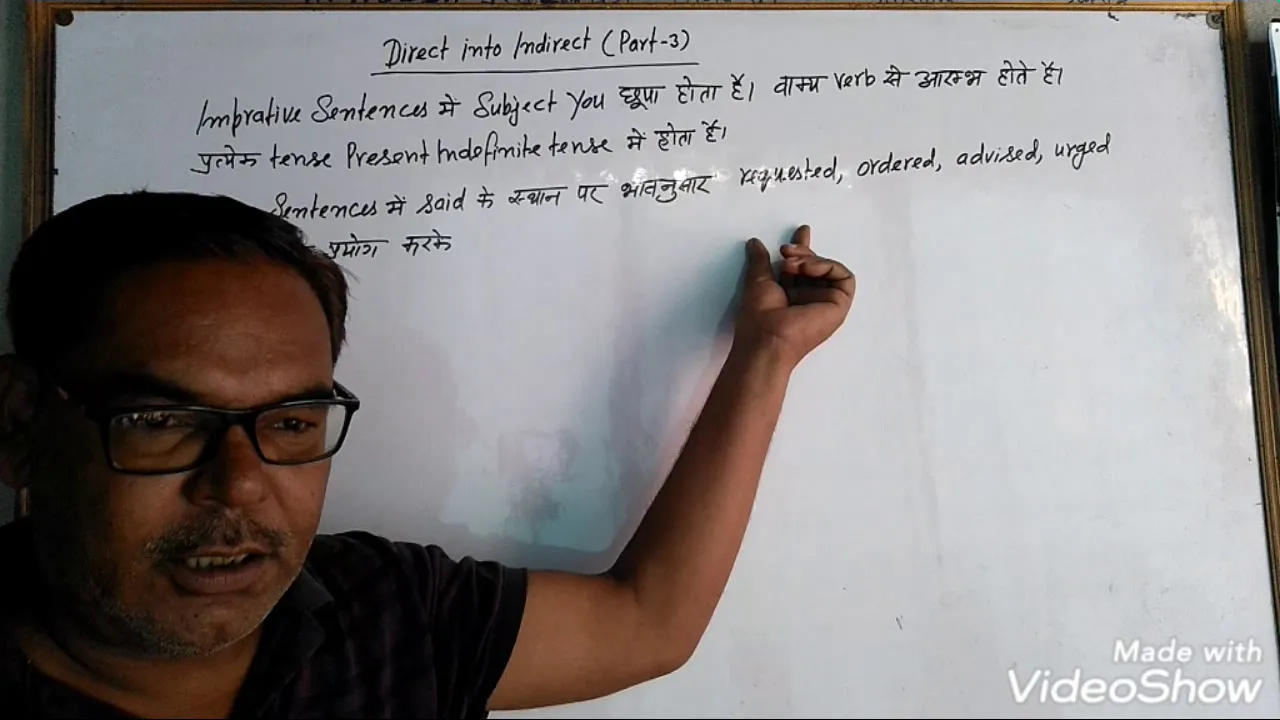 Direct into Indirect (Part-3)
Imprative Sentences में Subject You छूपा होता है। वाक्य verb से आरम्भ होते है।
प्रत्येक tense Present Indefinite tense में होता है।
Sentences में said के स्थान पर भावनुसार requested, ordered, advised, urged
प्रयोग करके
Made with
VideoShow